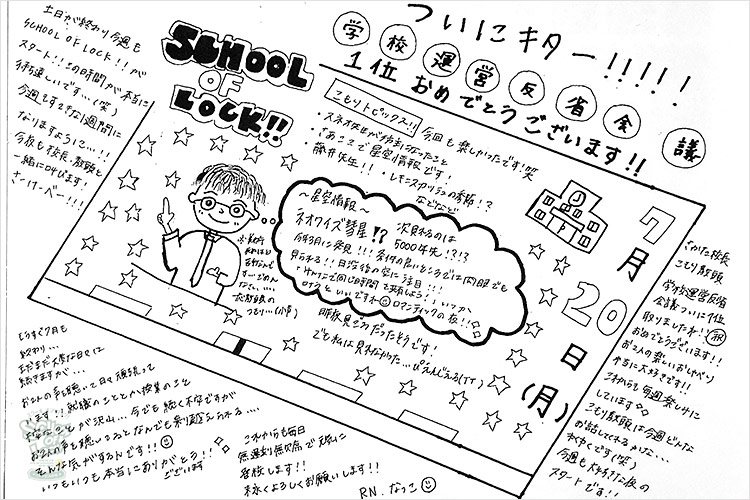 土日が終わり今週も
SCHOOL OF LOCK!!が
スタート!!この時間が本当に
待遠しいです…(笑)
今週もすてきな1週間に
なりますように…!!
今夜も校長、教頭と
一緒に叫びます!
さっけーべー!!!
SCHOOL
OF
LOCK!!
ついにキター!!!!!
学校運営反省会議
1位おめでとうございます!!
こもりトピックス!!
今回も楽しかったです!笑
・さあここで星空情報です!
・藤井先生!!
・レモンスカッシュの季節!?
などなど
~星空情報~
ネオワイズ彗星!?
次見れるのは
5000年先!?!?
今年3月に発見!!!条件の良いところでは肉眼でも
見られる!!日没後の空に注目!!!
ロマンティックの夜!!
昨夜見ごろだったそうです!
でも私は見れなかった…ぴえんどえる(TT)
7月20日(月)
さかた校長
こもり教頭
学校運営反省
会議ついに1位
取りましたね!!祝
おめでとうございます!!
お2人の楽しいおしゃべり
本当に大好きです!!
これからも毎週楽しみに
しています
こもり教頭は今週どんな
お話してくれるかな…
わくわくです(笑)
今週も大好きな夜の
スタートです!!
もうすぐ7月も
終わり…
まだまだ大変な日々は
続きますが…
お2人の声を聴いて日々頑張って
います!!就職のこととか授業のこと
不安なことが沢山…今でも続く不安ですが
お2人の声を聴いてるとなんでも乗り越えられる…
そんな気がするんです!!
いつもいつも本当にありがとう!!
ございます
これからも毎日
無遅刻無欠席で夜に
登校します!!
末永くよろしくお願いします!!
R.N. なっこ